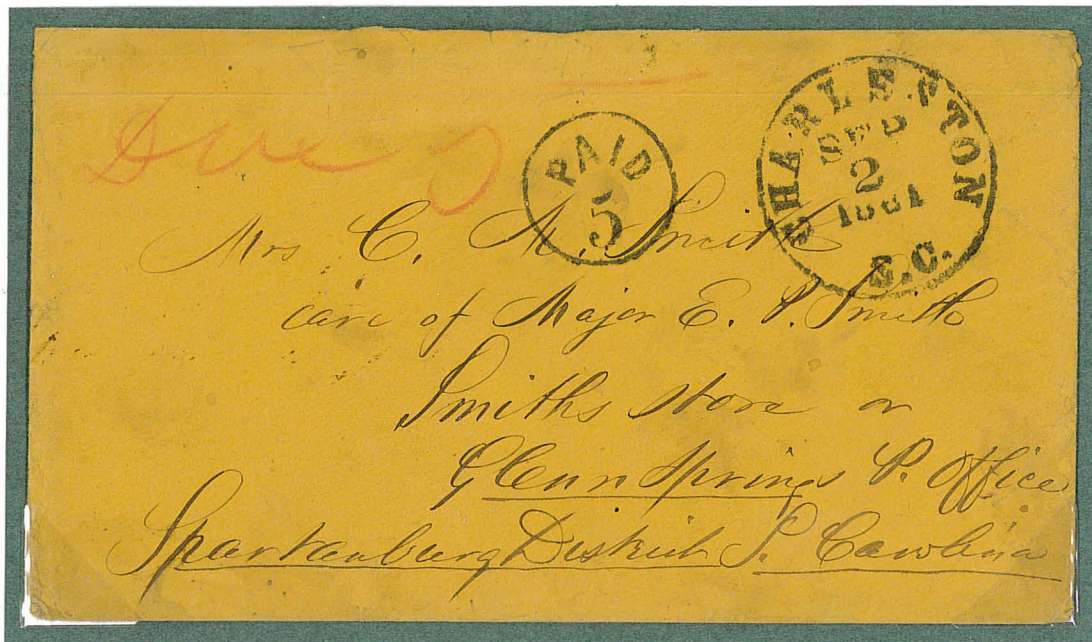 Due 5
PAID
5
CHARLESTON
SEP
2
1861
S.C.
Mrs C. M. Smith
care of Major E. P. Smith
Smiths store or
Glenn Springs P. Office
Spartanburg District S. Carolina